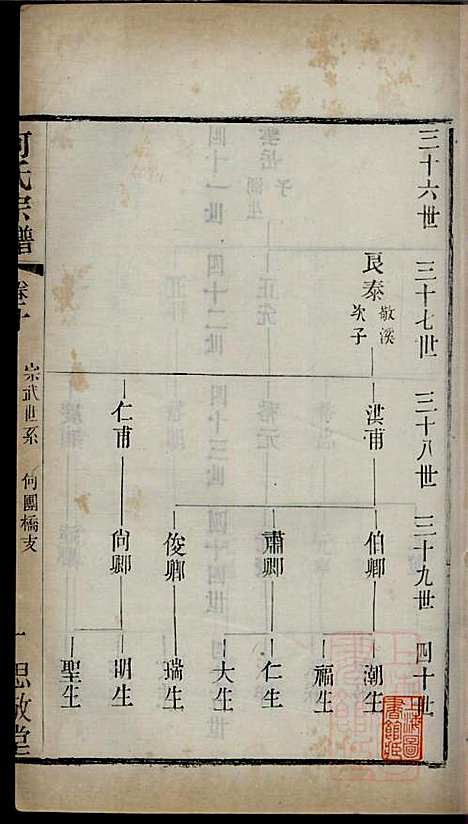 三十六世 三十七世 三十八世 三十九世 四十世
良泰
敬溪
次子
洪甫
伯卿
潮生
福生
肅卿
仁生
大生
俊卿
瑞生
仁甫
尚卿
明生
聖生
何氏宗譜
卷十
宗武世系 何團橋支
一
思敬堂
上海圖書館藏